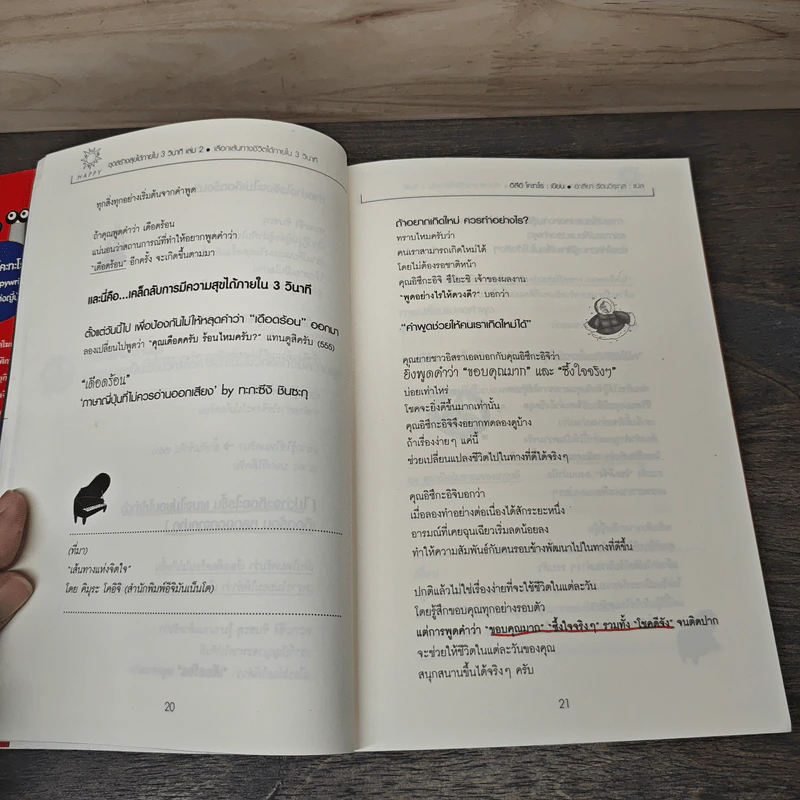 HAPPY
ชุดสร้างสุขได้ภายใน 3 วินาที เล่ม 2 • เลือกเส้นทางชีวิตได้ภายใน 3 วินาที
ทุกสิ่งทุกอย่างเริ่มต้นจากคำพูด
ถ้าคุณพูดคำว่า เดือดร้อน
แน่นอนว่าสถานการณ์ที่ทำให้อยากพูดคำว่า
"เดือดร้อน" อีกครั้ง จะเกิดขึ้นตามมา
และนี่คือ...เคล็ดลับการมีความสุขได้ภายใน 3 วินาที
ตั้งแต่วันนี้ไป เพื่อป้องกันไม่ให้หลุดคำว่า "เดือดร้อน" ออกมา
ลองเปลี่ยนไปพูดว่า "คุณเดือดครับ ร้อนไหมครับ?" แทนดูสิครับ (555)
"เดือดร้อน"
'ภาษาญี่ปุ่นที่ไม่ควรอ่านออกเสียง' by ทะกะซึงิ ชินซะกุ
(ที่มา)
"เส้นทางแห่งจิตใจ"
โดย คิมุระ โคอิจิ (สำนักพิมพ์อิจิมันเน็นโด)
20
ฮิซึอิ โคทาโร : เขียน •
ถ้าอยากเกิดใหม่ ควรทำอย่างไร?
ทราบไหมครับว่า
คนเราสามารถเกิดใหม่ได้
โดยไม่ต้องรอชาติหน้า
คุณอิซึกะอิจิ ซึโยะชิ เจ้าของผลงาน
"พูดอย่างไรให้ดวงดี?" บอกว่า
"คำพูดช่วยให้คนเราเกิดใหม่ได้"
คุณยายชาวอิสราเอลบอกกับคุณอิซึกะอิจิว่า
ยิ่งพูดคำว่า "ขอบคุณมาก" และ "ซึ้งใจจริงๆ"
บ่อยเท่าไหร่
โชคจะยิ่งดีขึ้นมากเท่านั้น
คุณอิซึกะอิจิจึงอยากทดลองดูบ้าง
ถ้าเรื่องง่ายๆ แค่นี้
ช่วยเปลี่ยนแปลงชีวิตไปในทางที่ดีได้จริงๆ
คุณอิซึกะอิจิบอกว่า
เมื่อลองทำอย่างต่อเนื่องได้สักระยะหนึ่ง
อารมณ์ที่เคยฉุนเฉียวเริ่มลดน้อยลง
ทำให้ความสัมพันธ์กับคนรอบข้างพัฒนาไปในทางที่ดีขึ้น
ปกติแล้วไม่ใช่เรื่องง่ายที่จะใช้ชีวิตในแต่ละวัน
โดยรู้สึกขอบคุณทุกอย่างรอบตัว
แต่การพูดคำว่า "ขอบคุณมาก" "ซึ้งใจจริงๆ" รวมทั้ง "โชคดีจัง" จนติดปาก
จะช่วยให้ชีวิตในแต่ละวันของคุณ
สนุกสนานขึ้นได้จริงๆ ครับ
21